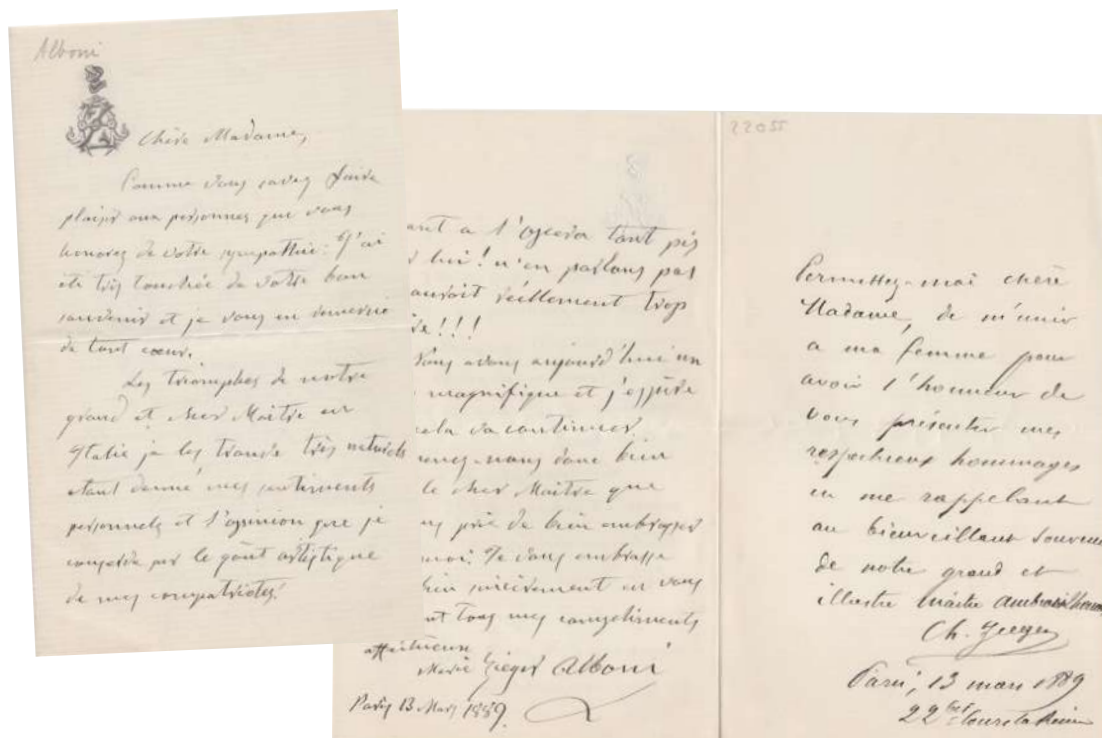 Alboni
Chère Madame,
Comme vous savez faire
plaisir aux personnes que vous
honorez de votre sympathie! J'ai
été très touchée de votre bon
souvenir et je vous en remercie
de tout cœur.
Les triomphes de notre
grand et cher Maître en
Italie je les trouve très naturels
étant donné mes sentiments
personnels et l'opinion que je
conserve sur le goût artistique
de mes compatriotes!
ant a l'opera tant pis
lui! n'en parlons pas
auroit réellement trop
e!!!
vous avons aujourd'hui un
magnifique et j'espère
cela va continuer
nous donc bien
le cher Maître que
prie de bien embrasser
moi. Je vous embrasse
bien sincèrement en vous
ant tous mes compliments
affectueux
Marie Zieger Alboni
Paris 13 Mars 1889.
22055
Permettez-moi chère
Madame, de m'unir
a ma femme pour
avoir l'honneur de
vous présenter mes
respectueux hommages
en me rappelant
au bienveillant souvenir
de notre grand et
illustre maître
Ch. Zieger
Paris, 13 mars 1889
22